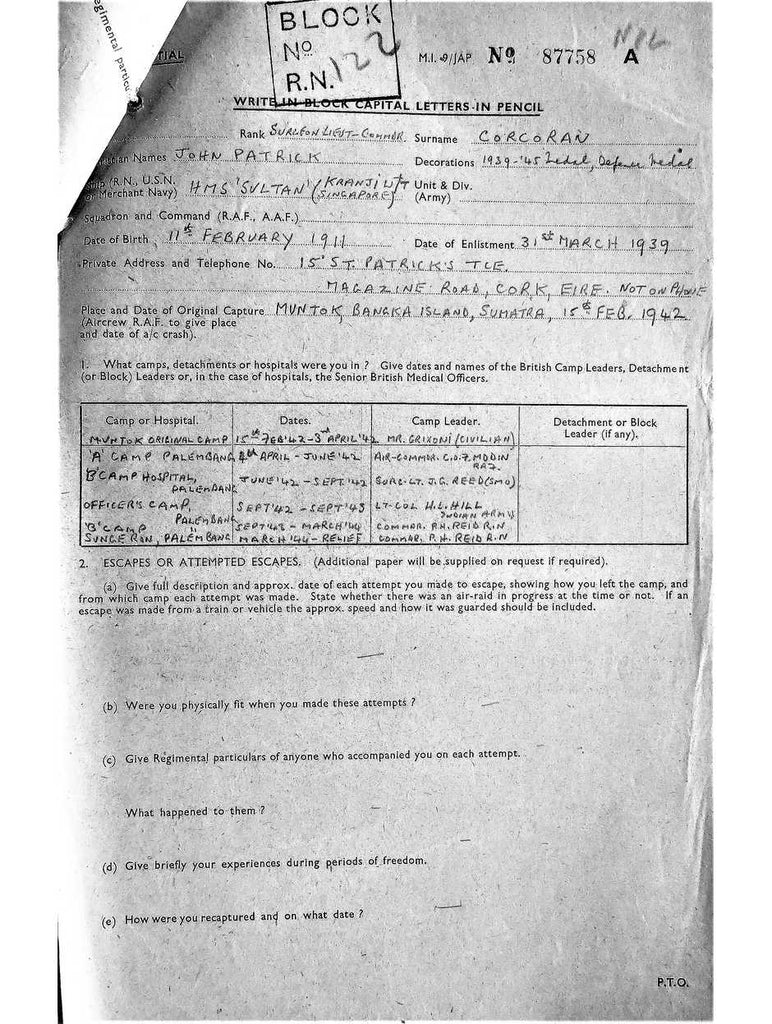 egimental particu
TIAL
BLOCK
No
R.N. 122
M.I. 9/JAP No 87758 A
NIL
WRITE IN BLOCK CAPITAL LETTERS IN PENCIL
Rank SURGEON LIEUT-COMMDR. Surname CORCORAN
tian Names JOHN PATRICK Decorations 1939-'45 Medal, Defence Medal
(R.N., U.S.N. or Merchant Navy) HMS 'SULTAN' (KRANJI W/T SINGAPORE) Unit & Div. (Army)
Squadron and Command (R.A.F., A.A.F.)
Date of Birth 11th FEBRUARY 1911 Date of Enlistment 31st MARCH 1939
Private Address and Telephone No. 15 ST. PATRICK'S TCE.
MAGAZINE ROAD, CORK, EIRE. NOT ON PHONE
Place and Date of Original Capture MUNTOK, BANGKA ISLAND, SUMATRA, 15th FEB. 1942
(Aircrew R.A.F. to give place
and date of a/c crash).
1. What camps, detachments or hospitals were you in ? Give dates and names of the British Camp Leaders, Detachment
(or Block) Leaders or, in the case of hospitals, the Senior British Medical Officers.
Camp or Hospital. Dates. Camp Leader. Detachment or Block Leader (if any).
MUNTOK ORIGINAL CAMP 15th FEB '42 - 3rd APRIL '42 MR. GRIXONI (CIVILIAN)
'A' CAMP PALEMBANG APRIL - JUNE '42 AIR-COMMDR. C.O.F. MODIN RAF
'B' CAMP HOSPITAL, PALEMBANG JUNE '42 - SEPT. '42 SURG-LT. J.G. REED (SMO)
OFFICER'S CAMP, PALEMBANG SEPT '42 - SEPT '43 LT-COL H.L. HILL INDIAN ARMY
'B' CAMP " SEPT '43 - MARCH '44 COMMDR. P.H. REID R.N
SUNGE RON, PALEMBANG MARCH '44 - RELIEF COMMDR. P.H. REID R.N
2. ESCAPES OR ATTEMPTED ESCAPES. (Additional paper will be supplied on request if required).
(a) Give full description and approx. date of each attempt you made to escape, showing how you left the camp, and
from which camp each attempt was made. State whether there was an air-raid in progress at the time or not. If an
escape was made from a train or vehicle the approx. speed and how it was guarded should be included.
—
(b) Were you physically fit when you made these attempts ? –
(c) Give Regimental particulars of anyone who accompanied you on each attempt.
–
What happened to them ? –
(d) Give briefly your experiences during periods of freedom.
–
(e) How were you recaptured and on what date ? —
P.T.O.